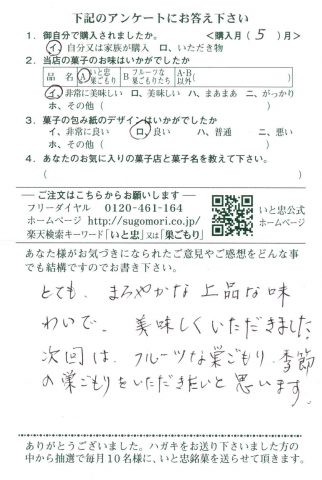 下記のアンケートにお答え下さい
1. 御自分で購入されましたか。 <購入月(5)月>
イ、自分又は家族が購入 ロ、いただき物
2. 当店の菓子のお味はいかがでしたか
品 名 A いと忠巣ごもり B フルーツな巣ごもりたち A・B以外( )
イ、非常に美味しい ロ、美味しい ハ、まあまあ ニ、がっかり
ホ、その他( )
3. 菓子の包み紙のデザインはいかがでしたか
イ、非常に良い ロ、良い ハ、普通 ニ、悪い
ホ、その他( )
4. あなたのお気に入りの菓子店と菓子名を教えて下さい。
( )
ご注文はこちらからお願いします
フリーダイヤル 0120-461-164
ホームページ http://sugomori.co.jp/
楽天検索キーワード「いと忠」又は「巣ごもり」
いと忠公式
ホームページ
あなた様がお気づきになられたご意見やご感想をどんな事
でも結構ですのでお書き下さい。
とても、まろやかな上品な味
わいで、美味しくいただきました。
次回は、フルーツな巣ごもり、季節
の巣ごもりをいただきたいと思います。
ありがとうございました。ハガキをお送り下さいました方の
中から抽選で毎月10名様に、いと忠銘菓を送らせて頂きます。